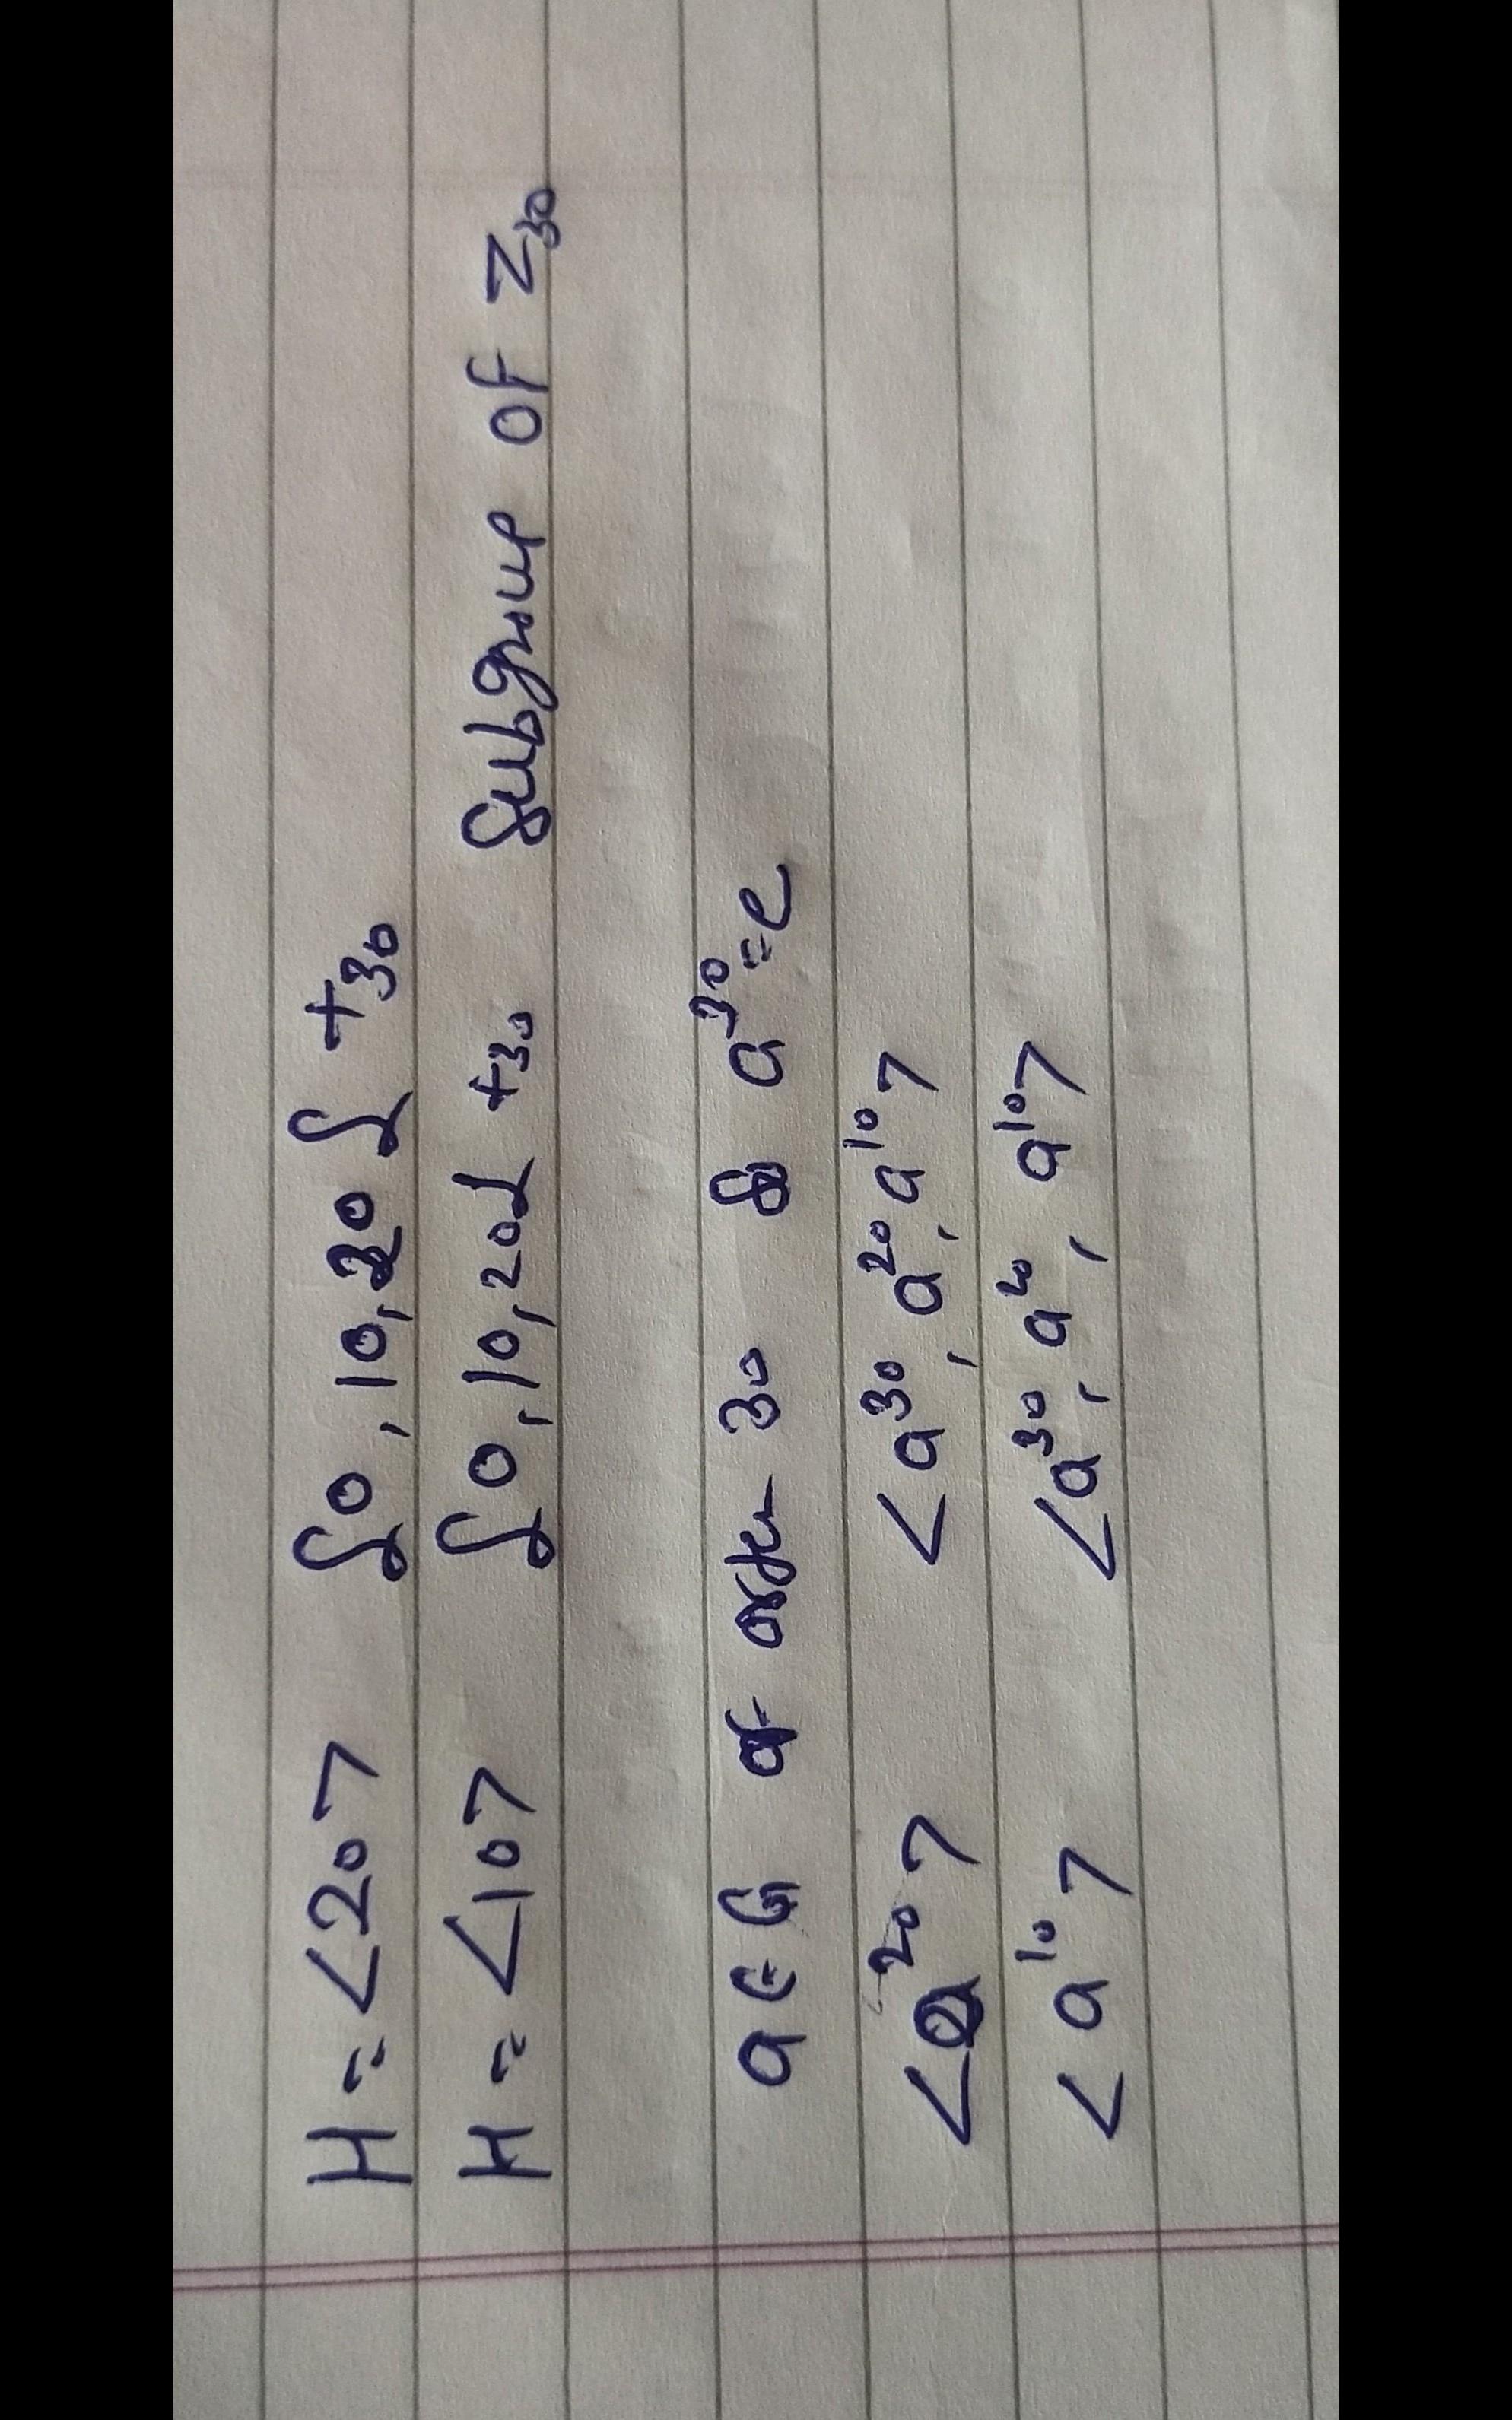 H = <20> {0, 10, 20} +30
H = <10> {0, 10, 20} +30 Subgroup of Z30
a ∈ G of order 30 & a^30 = e
<a^20> <a^30, a^20, a^10>
<a^10> <a^30, a^20, a^10>